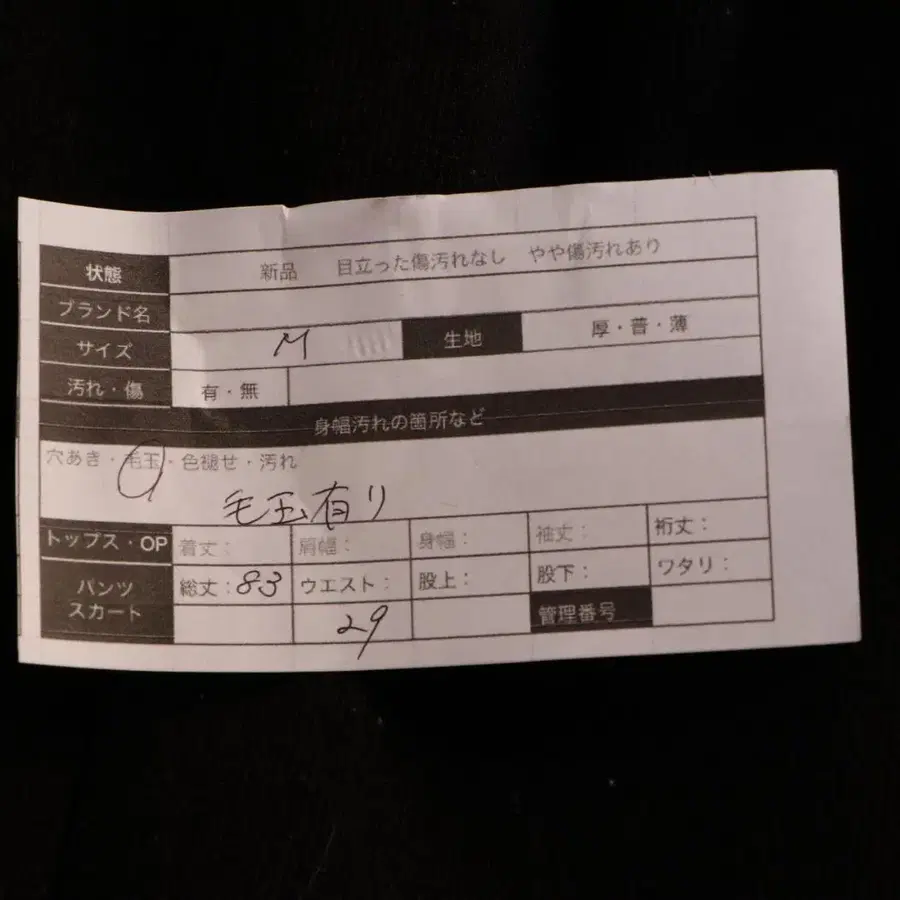 状態 新品 目立った傷汚れなし やや傷汚れあり
ブランド名
サイズ M 生地 厚・普・薄
汚れ・傷 有・無
身幅汚れの箇所など
穴あき・毛玉・色褪せ・汚れ
毛玉有り
トップス・OP 着丈: 肩幅: 身幅: 袖丈: 裄丈:
パンツ スカート 総丈:83 ウエスト: 股上: 股下: ワタリ:
29 管理番号